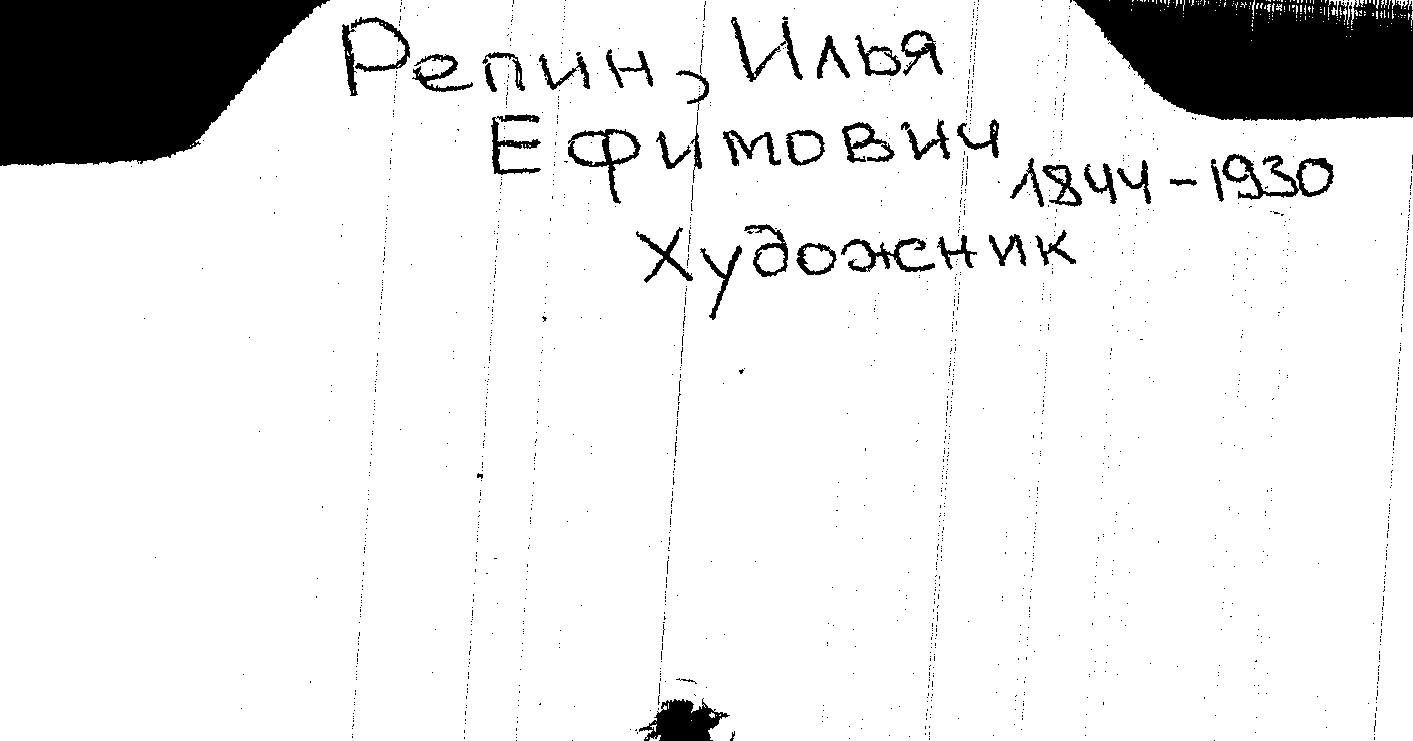 Репин, Илья
Ефимович 1844-1930
Художник